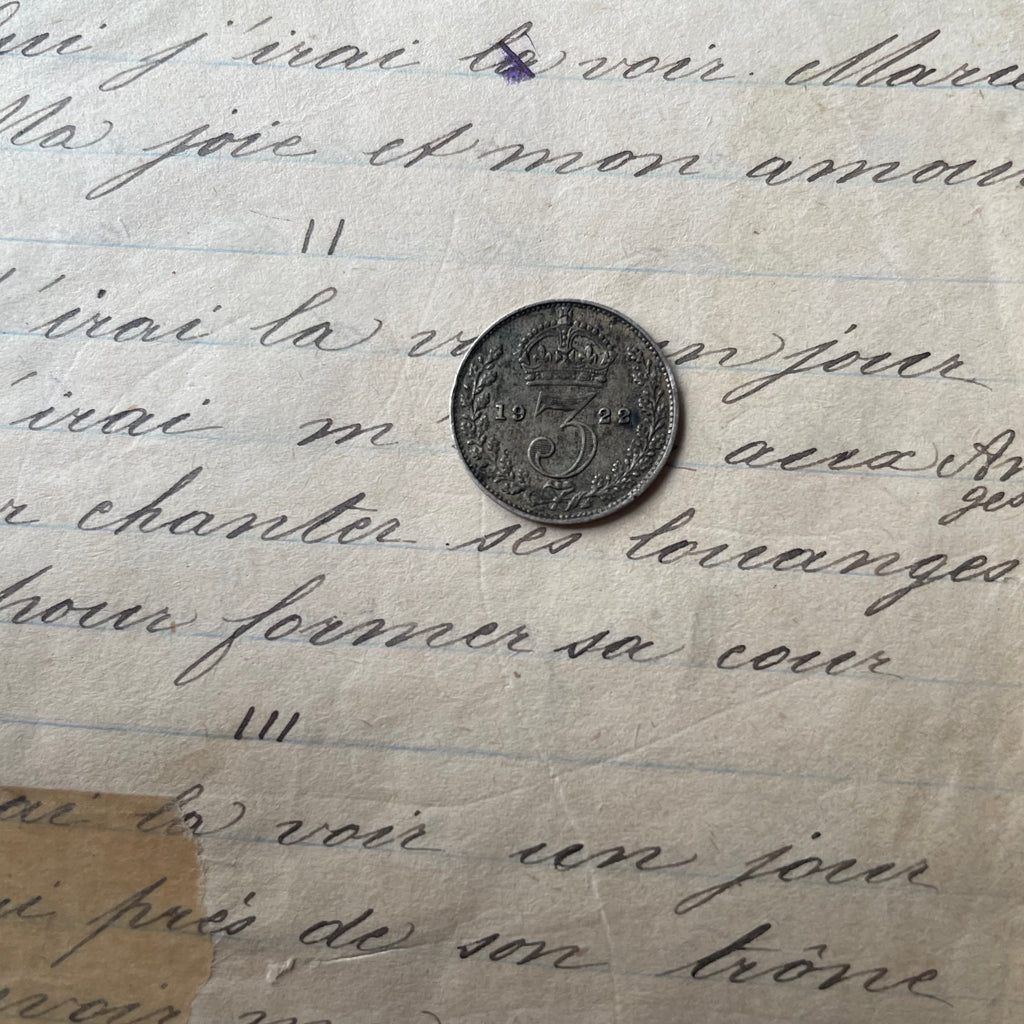 Oui j'irai la voir. Marie
Ma joie et mon amour
II
J'irai la v un jour
J'irai m aux An
ges
chanter ses louanges
Pour former sa cour
III
la voir un jour
près de son trône
19 3 22